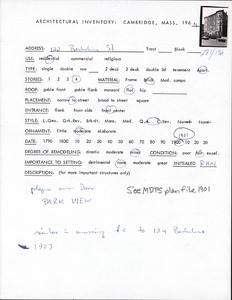 ARCHITECTURAL INVENTORY: CAMBRIDGE, MASS, 196
ADDRESS: 122 Berkshire St Tract Block
USE: residential commercial religious
TYPE: single double row 2 deck 3 deck 3d deck tenement Apart.
STORIES: 1 2 3 4 MATERIAL: Frame Brick Mod. comps
ROOF: gable front gable flank mansard flat hip
PLACEMENT: narrow to street broad to street square
ENTRANCE: flank front side front center
STYLE:
ORNAMENT: little moderate elaborate
1901
DATE: 1790 1800 10 20 30 40 50 60 70 80 90 1900 10 20
DEGREE OF REMODELING: drastic moderate none CONDITION: poor fair excel.
IMPORTANCE TO SETTING: detrimental none moderate great INITIALED RHN
DESCRIPTION: (for more important structures only)
plaque over Door See MDPS plan file 1901
PARK VIEW
similar in massing &c to 124 Berkshire
1903